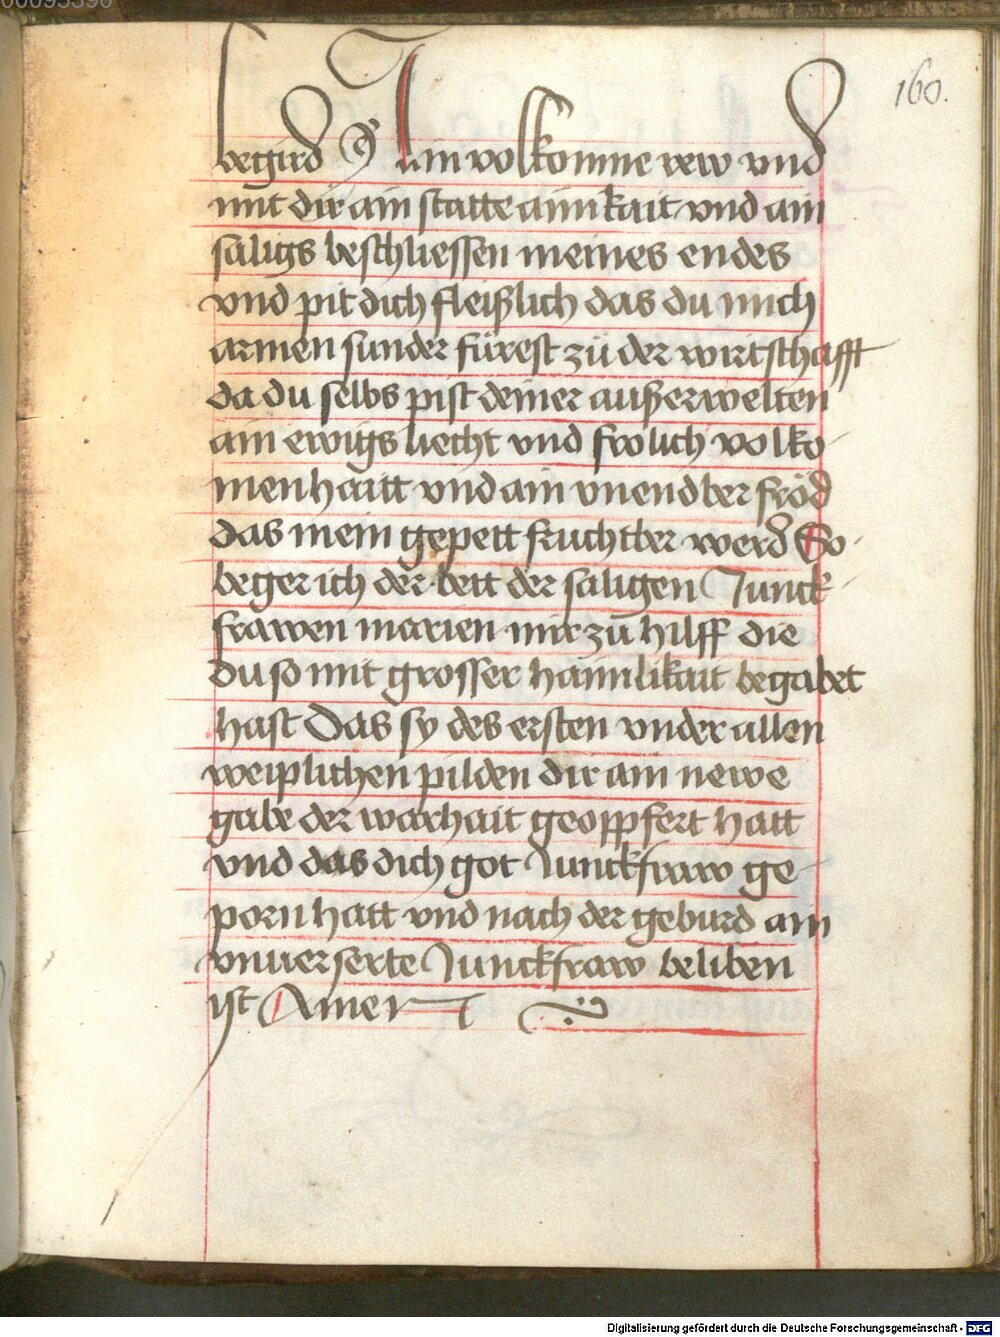 00095396
160.
begird Ain volkomne rew vnd
mit dir ain statte ainikait vnd ain
säligs beschliessen meines endes
vnd pit dich fleißlich das du mich
armen sunder fürest zü der wirtschafft
da du selbs pist deiner außerwelten
ain ewigs liecht vnd frölich volko
menhaitt vnd ain vnendber fröd
das mein gepett fruchtber werd So
beger ich der bett der säligen Junck
frawen marien mir zü hilff die
du so mit grosser haimlikait begabet
hast Das sy des ersten vnder allen
weiplichen pilden dir ain newe
gabe der warhait geoppfert hatt
vnd das dich got Junckfraw ge
porn hatt vnd nach der geburd ain
vnuerserte Junckfraw beliben
ist Amen
Digitalisierung gefördert durch die Deutsche Forschungsgemeinschaft - DFG